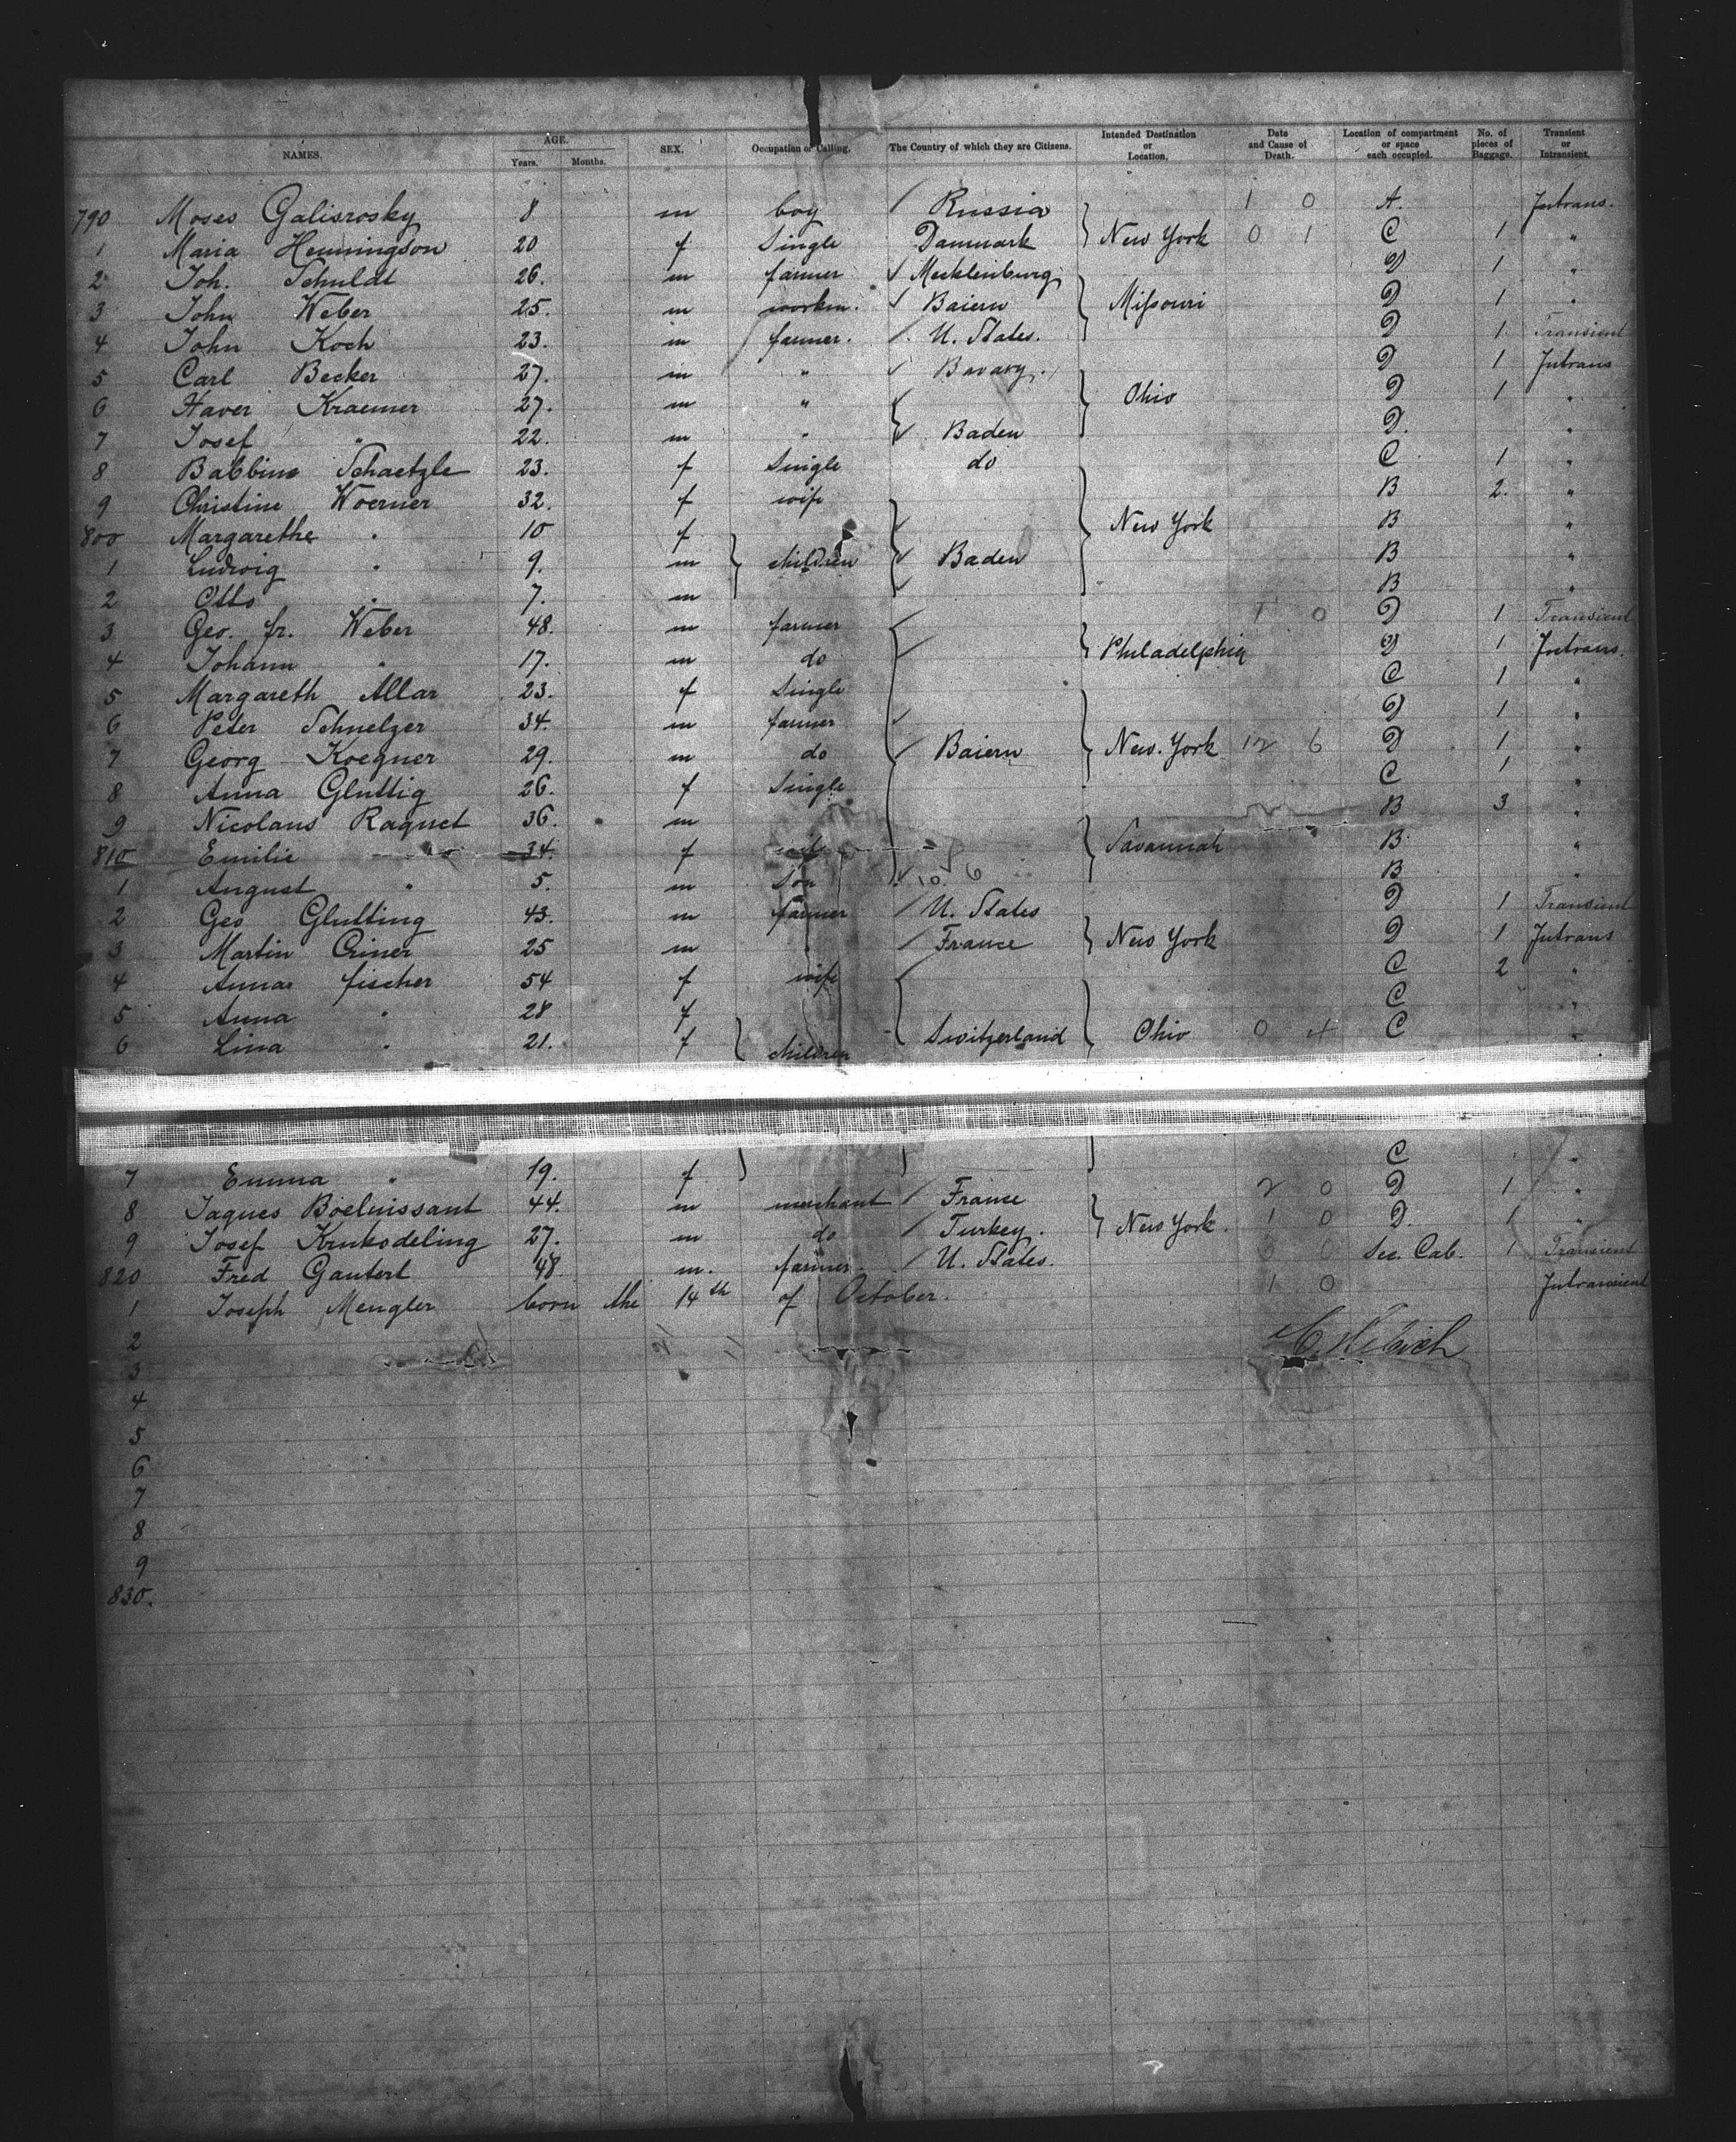 NAMES. AGE. Years. Months. SEX. Occupation or Calling. The Country of which they are Citizens. Intended Destination or Location. Date and Cause of Death. Location of compartment or space each occupied. No. of pieces of Baggage. Transient or Intransient.
790 Moses Galisrosky 8 m boy / Russia 1 0 A. Intrans.
1 Maria Henningson 20 f Single Danmark } New York 0 1 C 1 "
2 Joh. Schuldt 26. m farmer ✓ Mecklenburg D 1 "
3 John Weber 25. m workm. ✓ Baiern } Missouri D 1 "
4 John Koch 23. m farmer. / U. States. D 1 Transient
5 Carl Becker 27. m " ✓ Bavary. D 1 Intrans
6 Xaver Kraemer 27. m " ✓ } Ohio D 1 "
7 Josef " 22. m " { ✓ Baden D. "
8 Babbine Schaetzle 23. f Single do C 1 "
9 Christine Woerner 32. f wife B 2. "
800 Margarethe " 10 f ✓ } New York B "
1 Ludwig " 9. m } children { ✓ Baden B "
2 Otto " 7. m ✓ B "
3 Geo. fr. Weber 48. m farmer ✓ 1 0 D 1 Transient
4 Johann " 17. m do ✓ } Philadelphia D 1 Intrans.
5 Margareth Allar 23. f Single C 1 "
6 Peter Schnelzer 34. m farmer ✓ D 1 "
7 Georg Koegner 29. m do { ✓ Baiern } New York 12 6 D 1 "
8 Anna Gluttig 26. f Single C 1 "
9 Nicolaus Raquet 36. m B 3 "
810 Emilie " 34. f wife } Savannah B "
1 August " 5. m Son ✓ 10. 6 B "
2 Geo Glutting 43. m farmer / U. States D 1 Transient
3 Martin Criner 25 m " / France } New York D 1 Intrans
4 Anna fischer 54 f wife C 2 "
5 Anna " 28 f C "
6 Lina " 21. f } children { Switzerland } Ohio 0 4 C "
7 Emma " 19. f C "
8 Jaques Boeluissant 44. m merchant / France 2 0 D 1 "
9 Josef Krukodeling 27. m do / Turkey. } New York. 1 0 D. 1 "
820 Fred Gantert 48 m. farmer. / U. States. Sec. Cab. 1 Transient
1 Joseph Mengler born the 14th of October. 1 0 Intransient
2
3
4
5
6
7
8
9
830.